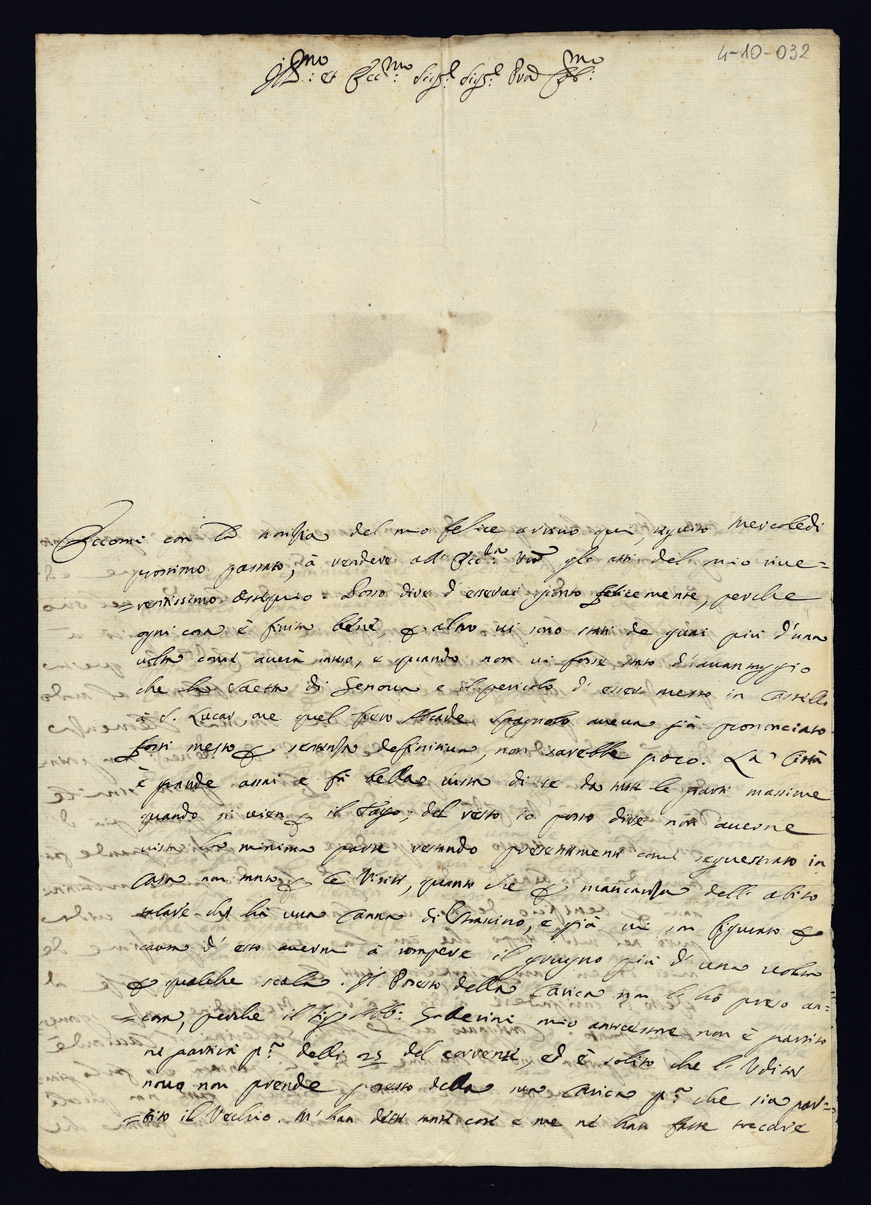 4-10-032
Ill.mo et Ecc.mo Sig.r Sig.r Pad. Col.mo
Eccomi con la notitia del mio felice arrivo qui, seguito Mercoledi
prossimo passato, à rendere all' Ecc.za V.ra gli atti del mio rive=
=rentissimo ossequio: Posso dire d'esservi gionto felicemente, perche
ogni cosa è finita bene, altro vi sono stati de guai più d'una
volta come averà inteso, e quando non vi fosse stato d'avantaggio
che la saetta di Genova e il pericolo d'esser messo in Castello
à S. Lucar, ove quel Alcade Spagnolo aveva già prononciato
sentenza definitiva, non sarebbe poco. La Città
è grande assai e fà bella vista di se da tutte le parti massime
quando si vien il Tago; del resto io posso dire non averne
vista la minima parte restando presentemente come sequestrato in
Casa non tanto le Visite, quanto che mancanza dell' abito
talare che hà una Canna di strascino, e già mi son figurato
causa d'esso avermi à rompere il grugno più d'una volta
qualche scala. Il Posesso della Carica non l'ho preso an=
=cora, perche il mio antecessore non è partito
ne partirà p.a delli 25 del corrente, ed è solito che l'Uditor
novo non prende posesso della sua Carica p.a che sia par=
=tito il Vechio. M'han dette tante cose e me ne han fatte